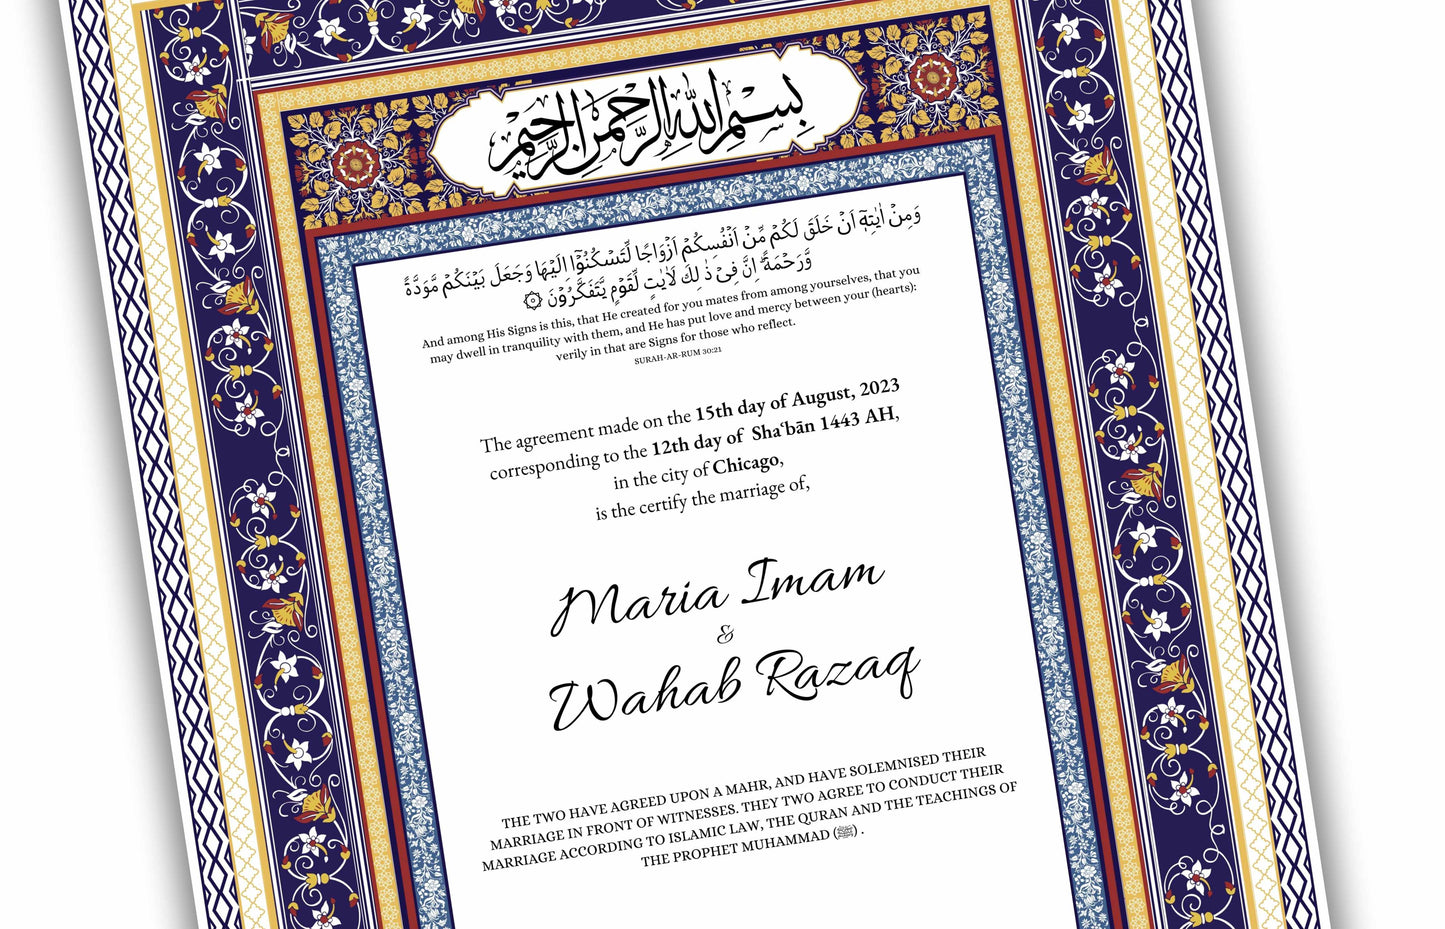 بِسْمِ اللهِ الرَّحْمَنِ الرَّحِيْمِ
وَمِنْ اٰيٰتِهٖٓ اَنْ خَلَقَ لَكُمْ مِّنْ اَنْفُسِكُمْ اَزْوَاجًا لِّتَسْكُنُوْٓا اِلَيْهَا وَجَعَلَ بَيْنَكُمْ مَّوَدَّةً
وَّرَحْمَةً ۗ اِنَّ فِيْ ذٰ لِكَ لَاٰيٰتٍ لِّقَوْمٍ يَّتَفَكَّرُوْنَ ۞
And among His Signs is this, that He created for you mates from among yourselves, that you
may dwell in tranquility with them, and He has put love and mercy between your (hearts):
verily in that are Signs for those who reflect.
SURAH-AR-RUM 30:21
The agreement made on the 15th day of August, 2023
corresponding to the 12th day of Shaʿbān 1443 AH,
in the city of Chicago,
is the certify the marriage of,
Maria Imam
&
Wahab Razaq
THE TWO HAVE AGREED UPON A MAHR, AND HAVE SOLEMNISED THEIR
MARRIAGE IN FRONT OF WITNESSES. THEY TWO AGREE TO CONDUCT THEIR
MARRIAGE ACCORDING TO ISLAMIC LAW, THE QURAN AND THE TEACHINGS OF
THE PROPHET MUHAMMAD (ﷺ) .